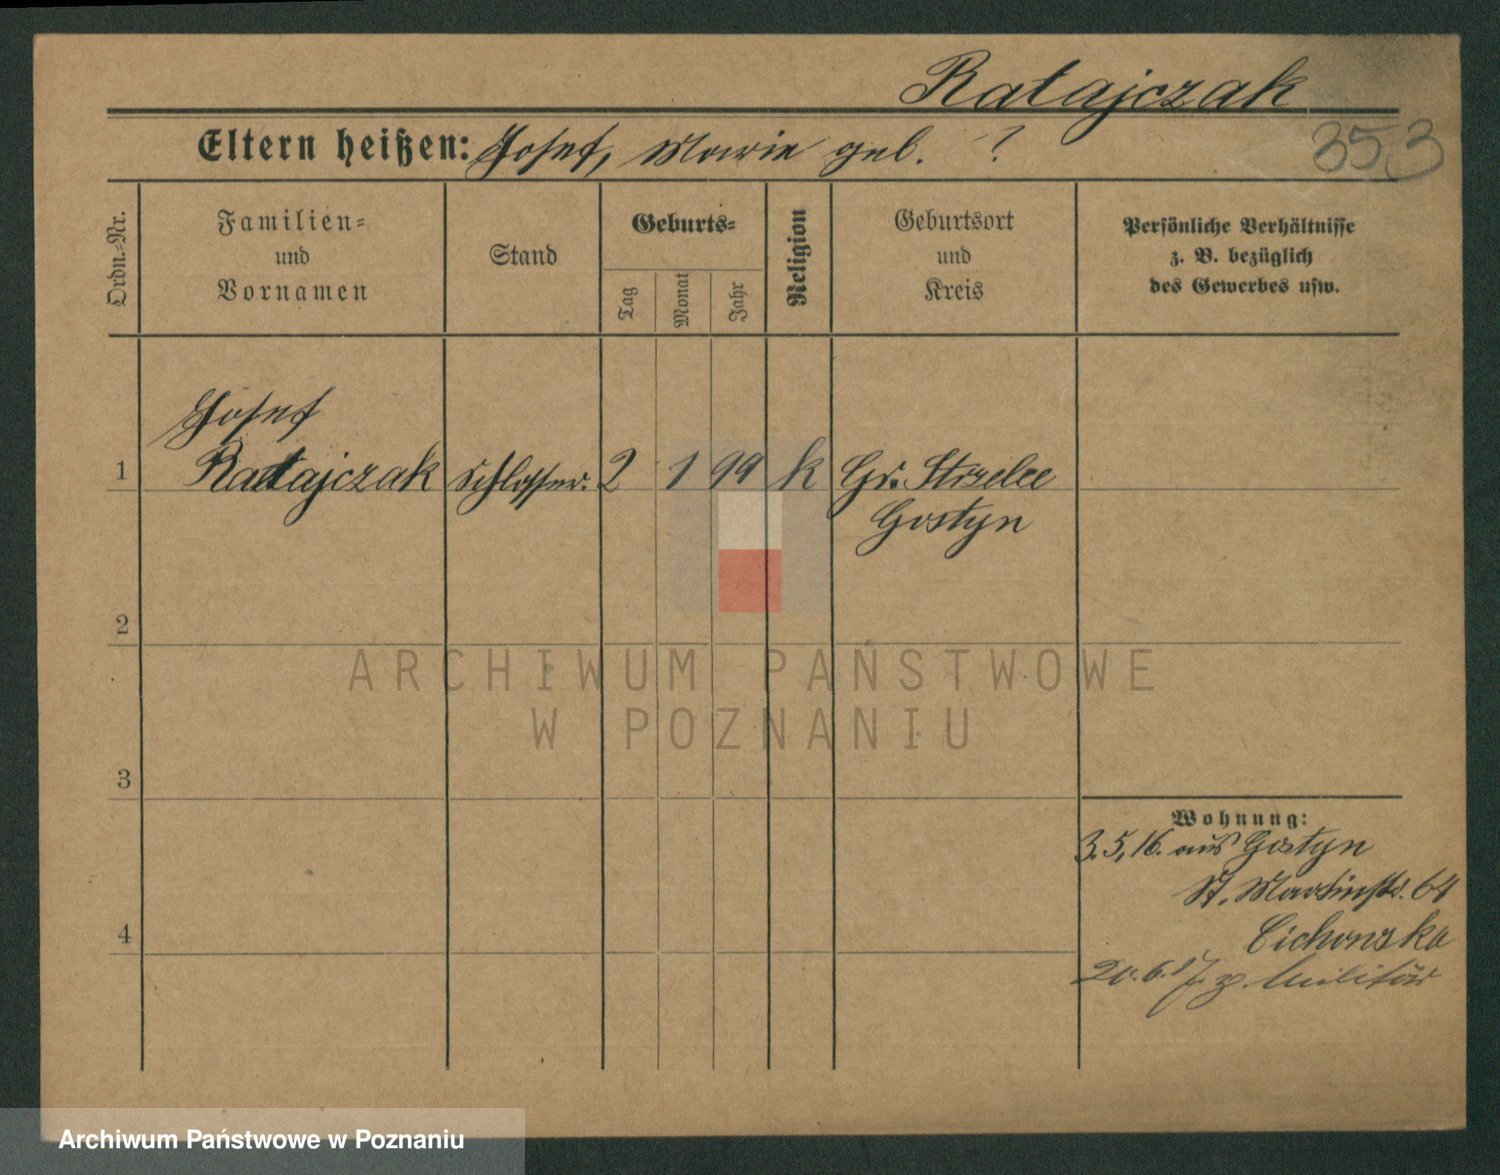 Ratajczak
Eltern heißen: Josef, Marie geb. ?
353
Ordn.-Nr.
Familien-
und
Vornamen
Stand
Geburts-
Tag
Monat
Jahr
Religion
Geburtsort
und
Kreis
Persönliche Verhältnisse
z. B. bezüglich
des Gewerbes usw.
Josef
1 Ratajczak Schlosser. 2 1 99 k Gr. Strzelce
Gostyn
2
ARCHIWUM PAŃSTWOWE
W POZNANIU
3
Wohnung:
3.5.16. aus Gostyn
St. Martinstr. 64
4
Cichonska
20.6.17. z. Militär
Archiwum Państwowe w Poznaniu